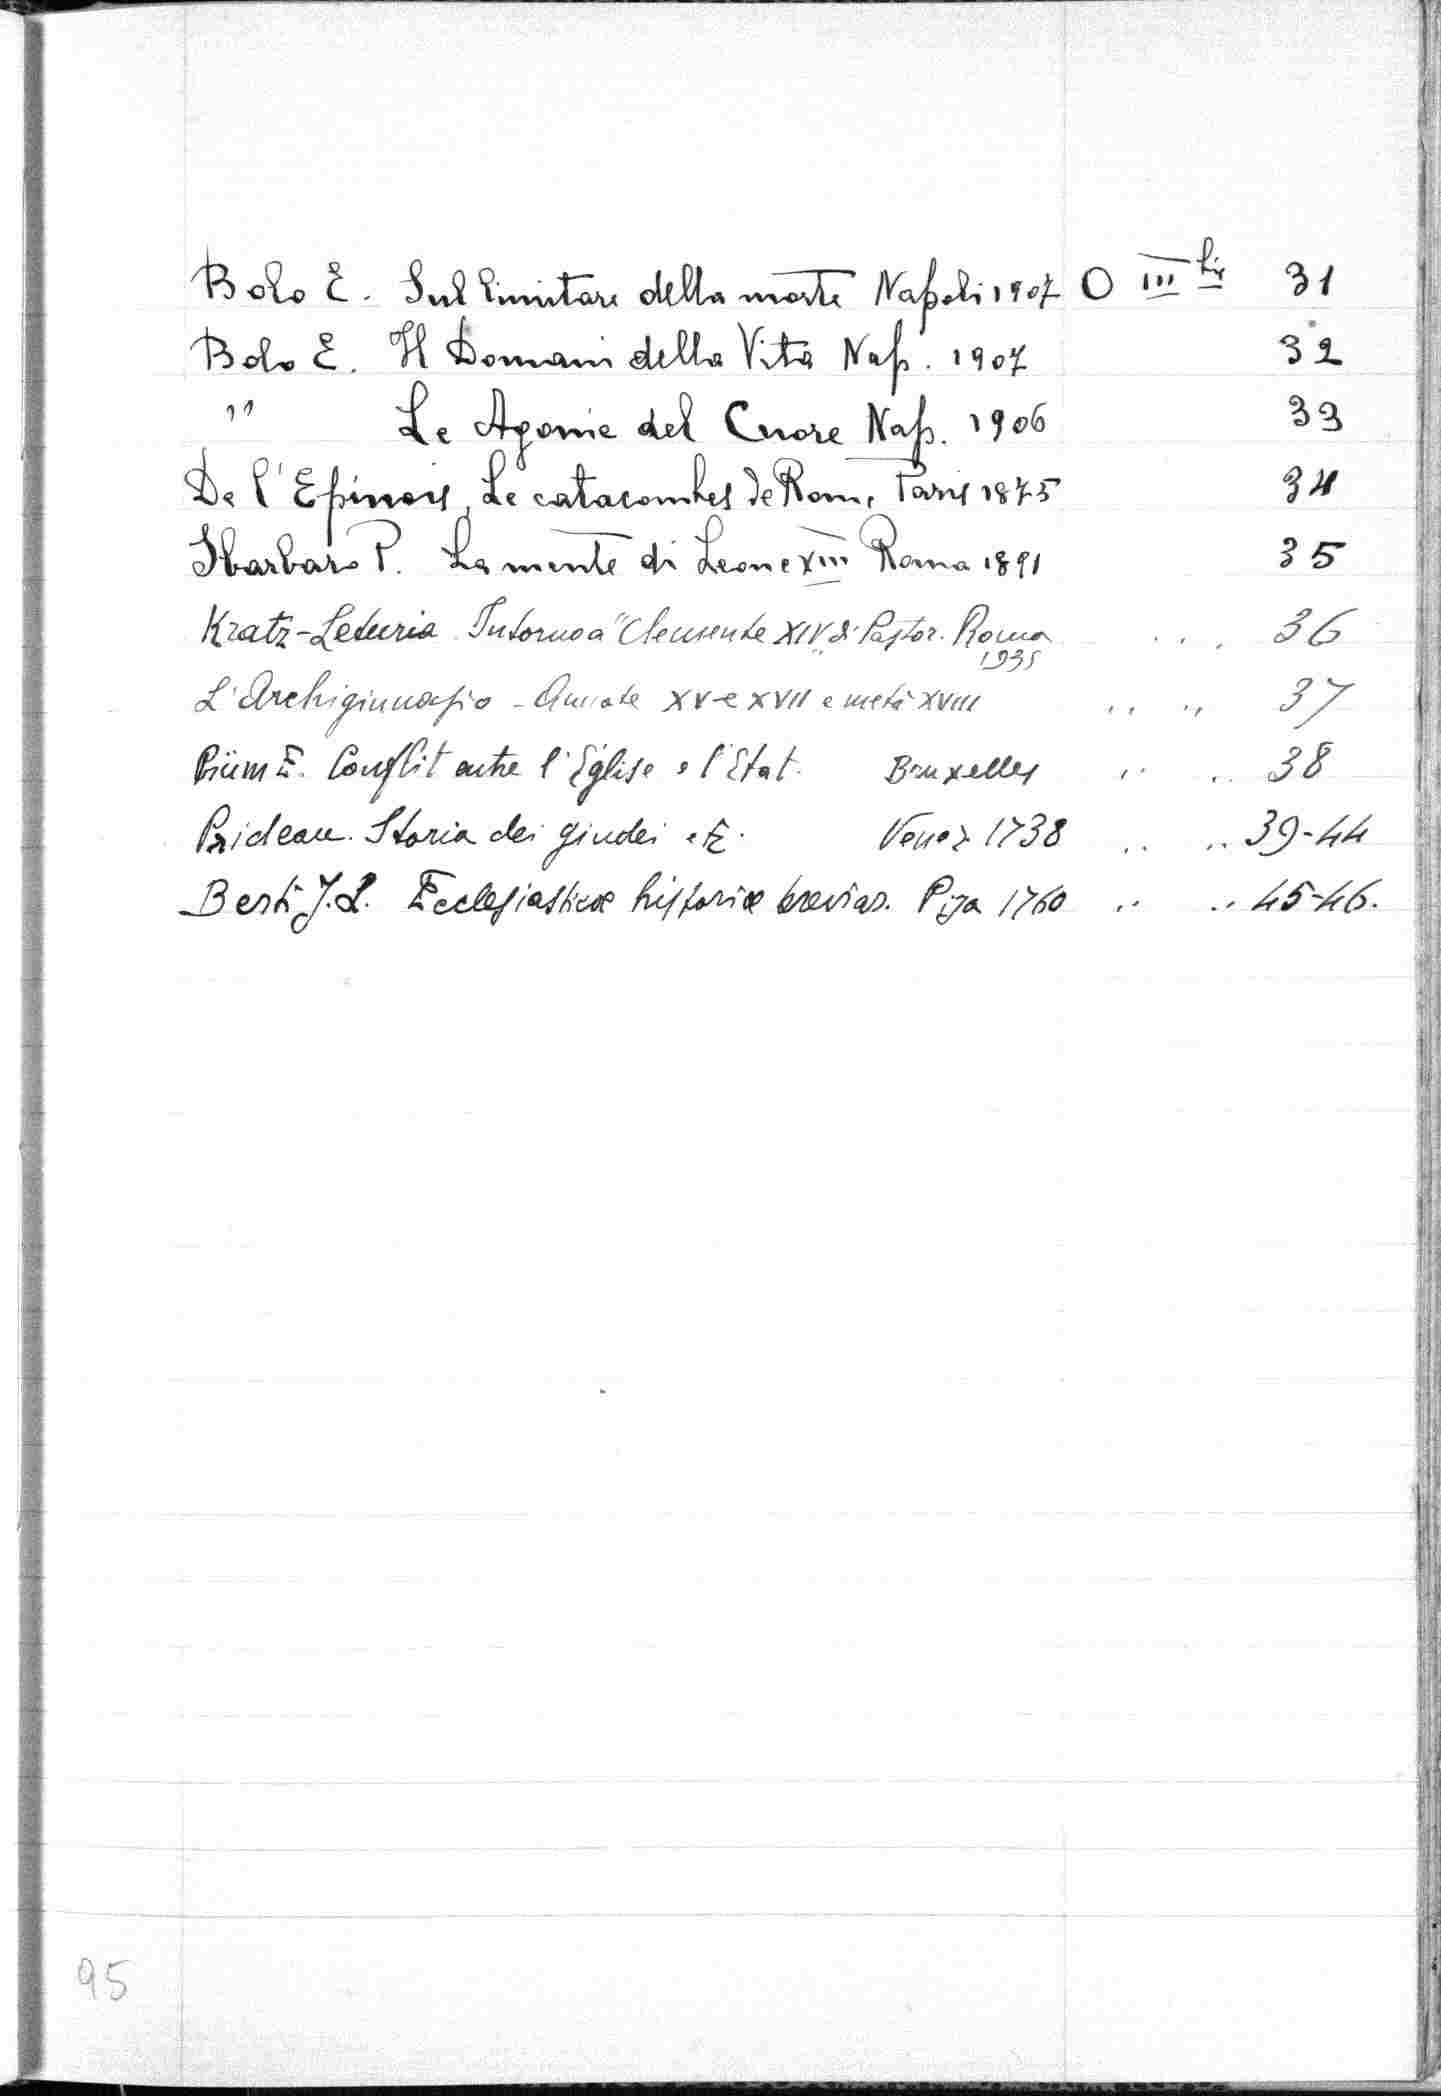 Bolo E. Sul limitare della morte Napoli 1907 O III bis 31
Bolo E. Il Domani della Vita Nap. 1907 32
" Le Agonie del Cuore Nap. 1906 33
De l'Epinois, Le catacombes de Rome Paris 1875 34
Sbarbaro P. La mente di Leone XIII Roma 1891 35
Kratz-Leturia Intorno a "Clemente XIV" di Pastor. Roma . . . 36
1935
L'Archiginnasio - Annate XV e XVII e metà XVIII .. .. 37
Prüm E. Conflit entre l'Église e l'Etat. Bruxelles .. .. 38
Prideau. Storia dei giudei etc. Venez 1738 .. .. 39-44
Berti J.L. Ecclesiasticæ historiæ breviar. Pisa 1760 .. .. 45-46.
95